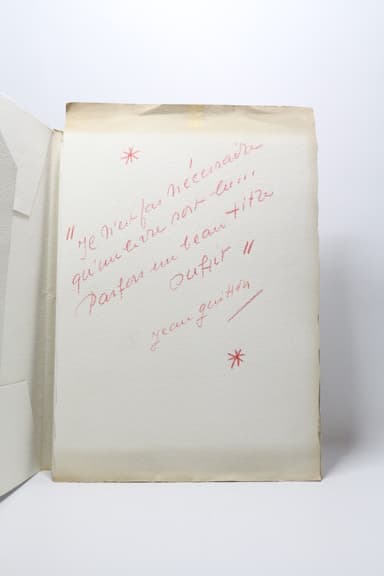 *
"Je n'est pas nécessaire
qu'un livre soit lu...
Parfois un beau titre
suffit"
Jean Guitton
*